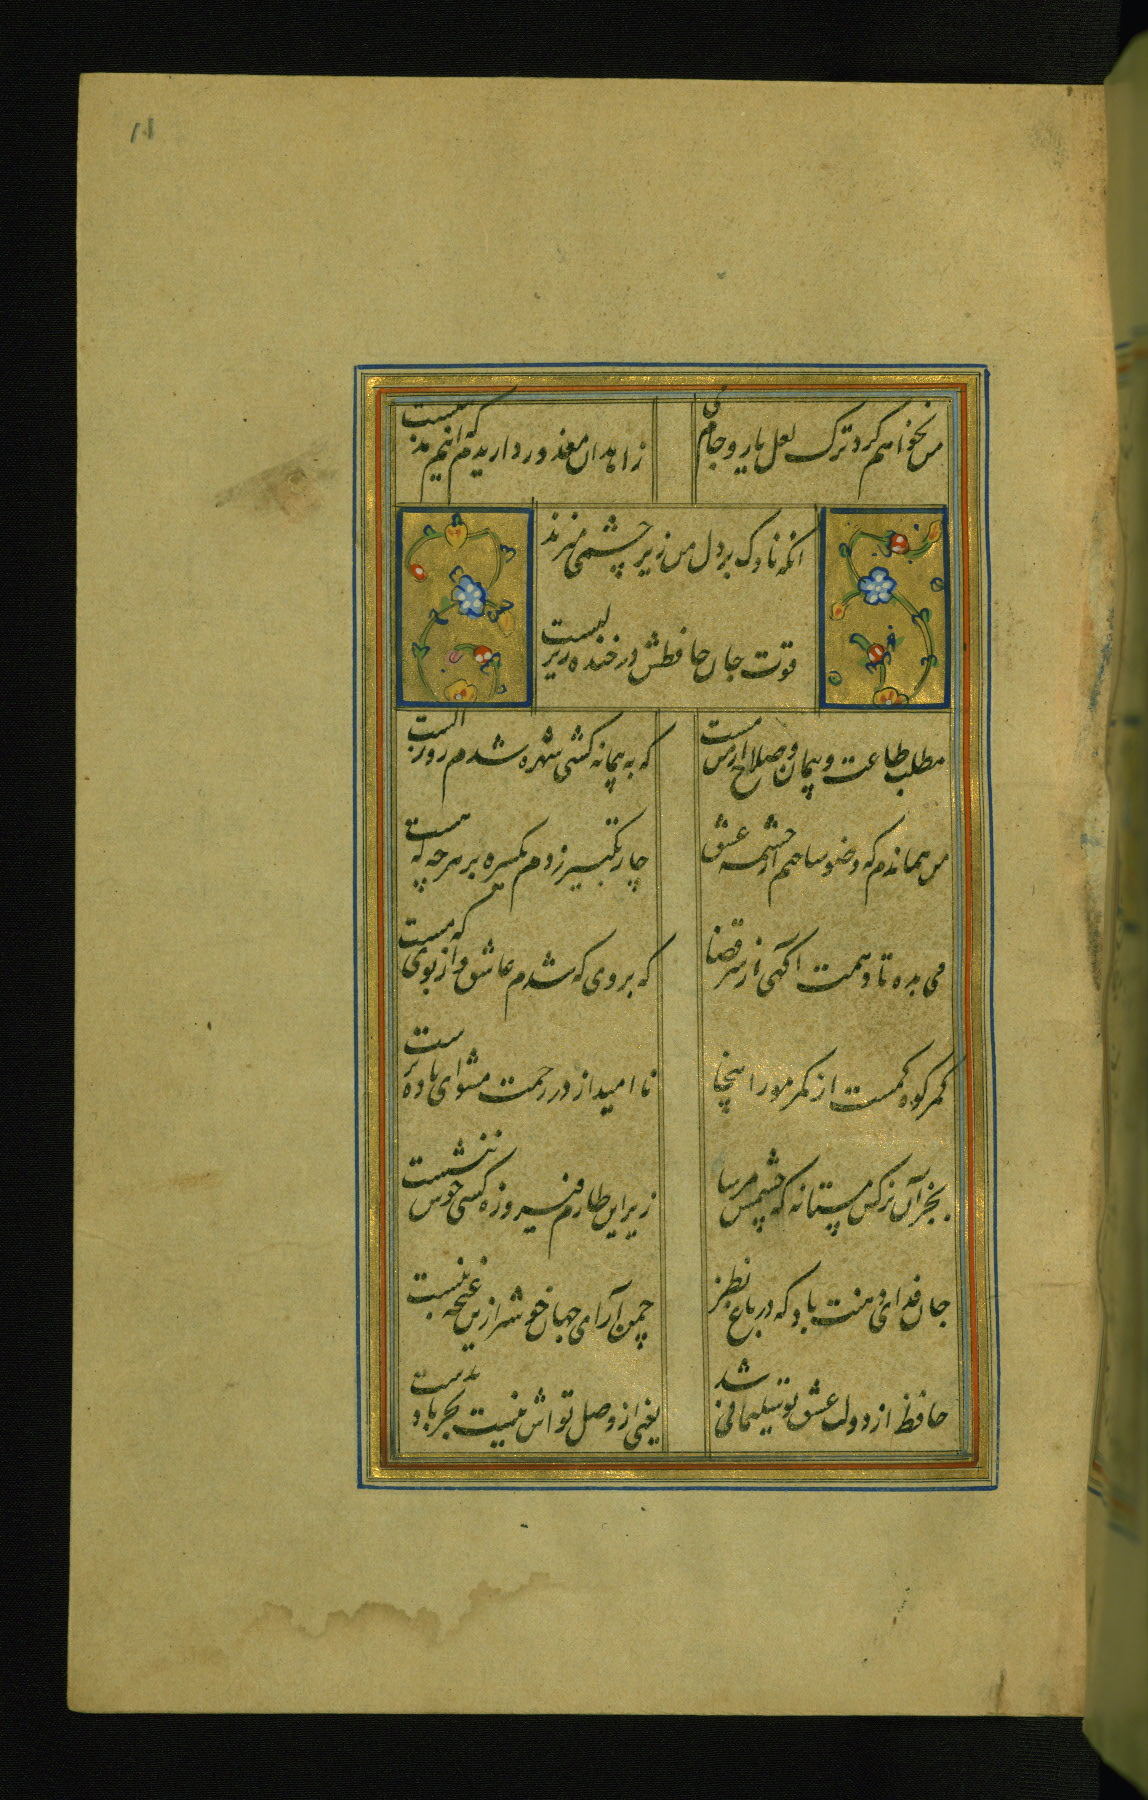 من نخواهم کرد ترک لعل یار و جام می
زاهدان معذور داریدم که اینم مذهبست
انکه ناوک بر دل من زیر چشمی میزند
قوت جان حافظش در خنده زیر لبست
مطلب طاعت و پیمان و صلاح از من مست
که به پیمانه کشی شهره شدم روز الست
من هماندم که وضو ساختم از چشمه عشق
چار تکبیر زدم یکسره بر هرچه که هست
می بده تا دهمت آگهی از سر قضا
که بروی که شدم عاشق و از بوی که مست
کمر کوه کمست از کمر مور اینجا
ناامید از در رحمت مشو ای باده پرست
بجز آن نرکس مستانه که چشمش مرسا
زیر این طارم فیروزه کسی خوش ننشست
جان فدای دهنت باد که در باغ نظر
چمن آرای جهان خوشتر ازین غنچه نبست
حافظ از دولت عشق تو سلیمانی شد
یعنی از وصل تواش نیست بجز باد بدست